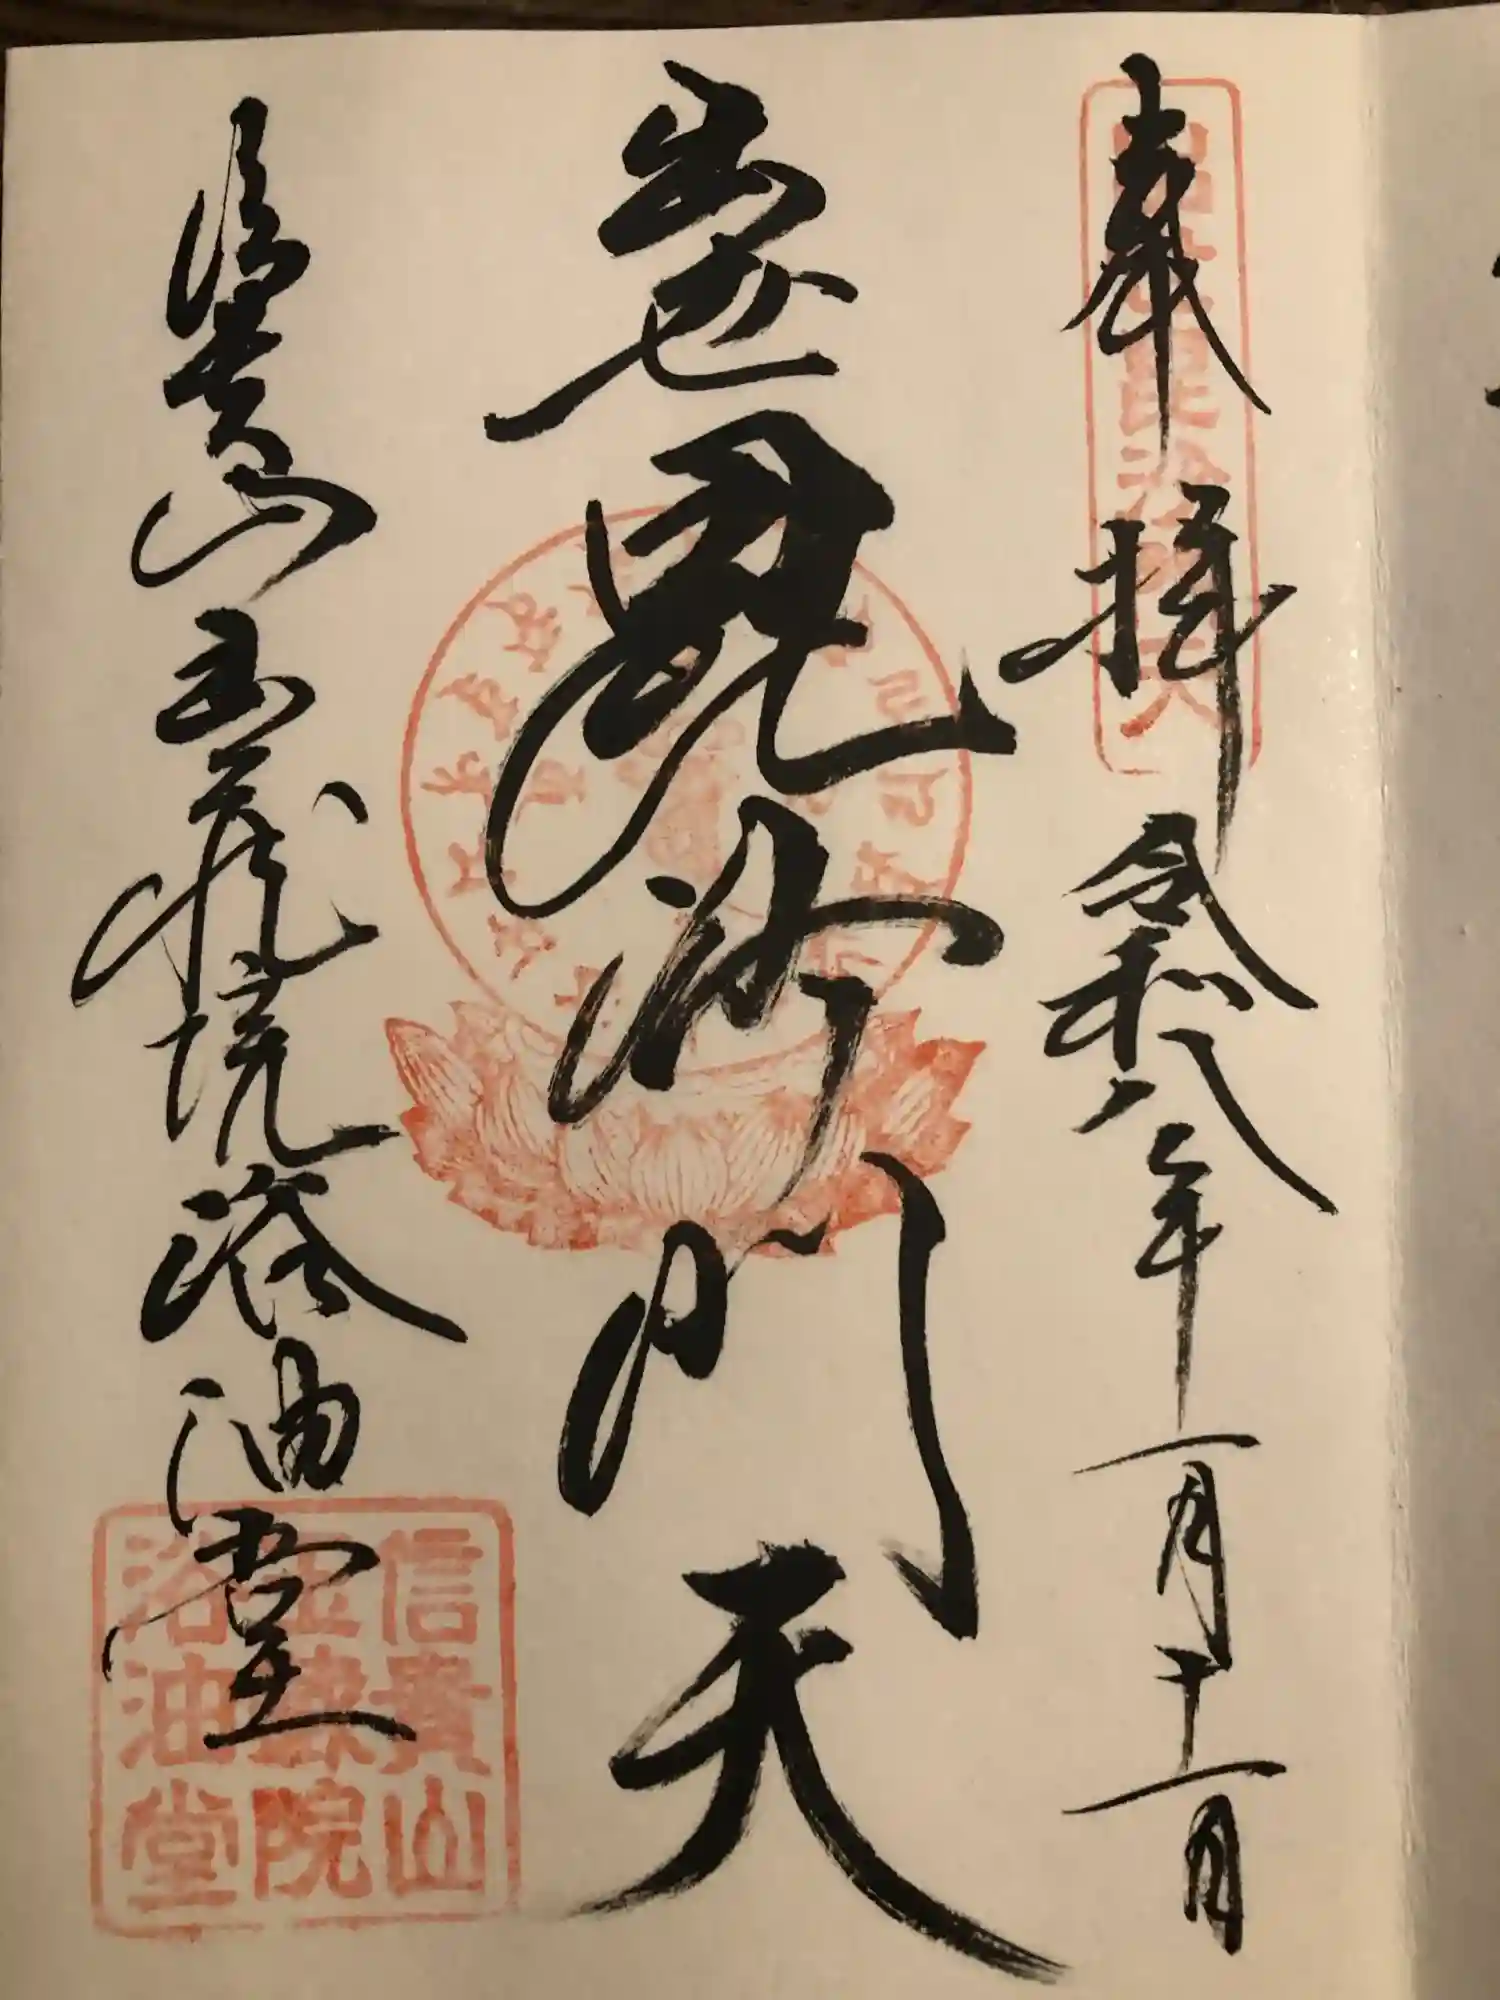 奉拝 令和八年一月十一日
出世毘沙門天
信貴山玉蔵院浴油堂
出世毘沙門天
信貴山
玉蔵院
浴油堂